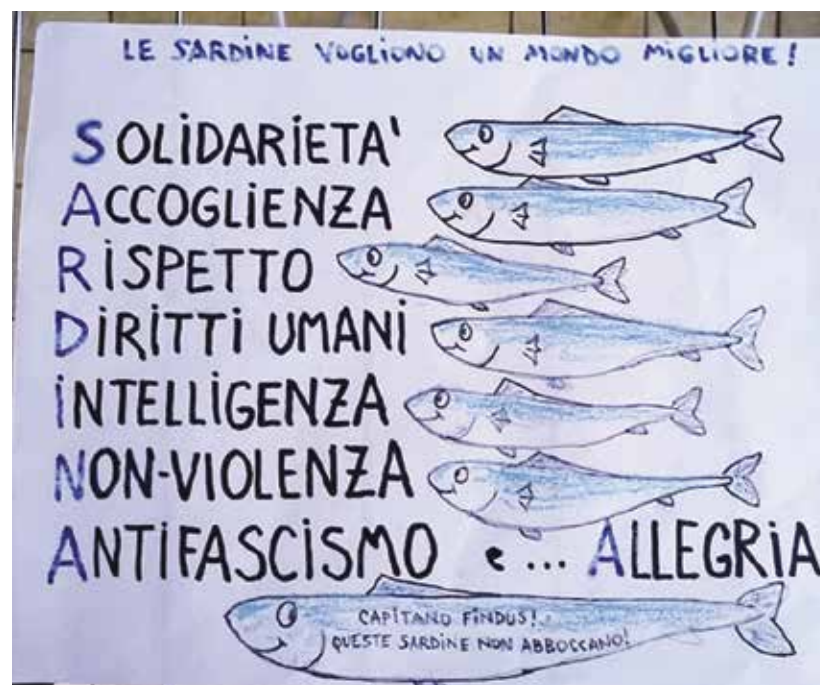 LE SARDINE VOGLIONO UN MONDO MIGLIORE!
SOLIDARIETA'
ACCOGLIENZA
RISPETTO
DIRITTI UMANI
INTELLIGENZA
NON-VIOLENZA
ANTIFASCISMO e... ALLEGRIA
CAPITANO FINDUS!
QUESTE SARDINE NON ABBOCCANO!